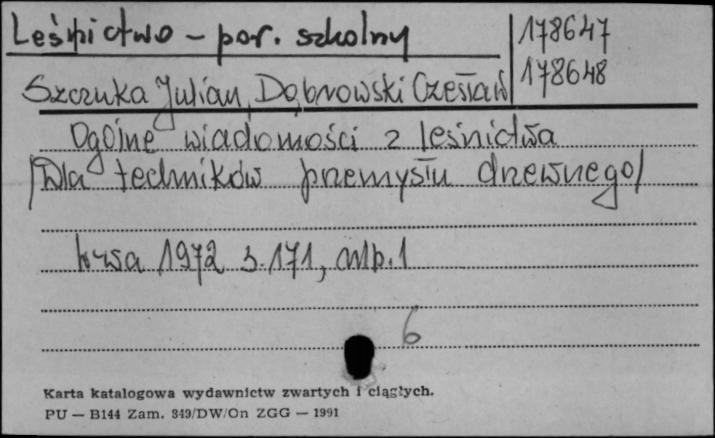 Leśnictwo - por. szkolny
178647
178648
Szczuka Julian, Dąbrowski Czesław
Ogólne wiadomości z leśnictwa
/Dla techników przemysłu drzewnego/
W-wa 1972 s. 171, nlb. 1
6
Karta katalogowa wydawnictw zwartych i ciągłych.
PU — B144 Zam. 349/DW/On ZGG — 1991